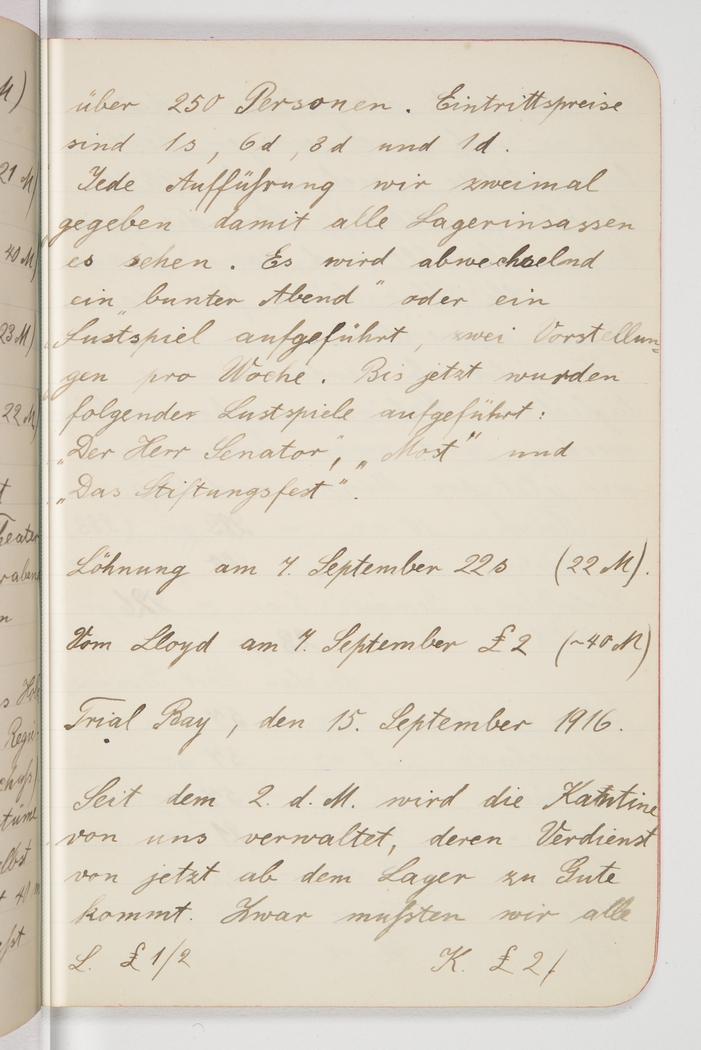 über 250 Personen. Eintrittspreise
sind 1s, 6d, 3d und 1d.
Jede Aufführung wir zweimal
gegeben damit alle Lagerinsassen
es sehen. Es wird abwechselnd
ein "bunter Abend" oder ein
Lustspiel aufgeführt, zwei Vorstellun=
gen pro Woche. Bis jetzt wurden
folgender Lustspiele aufgeführt:
„Der Herr Senator", „Most" und
„Das Stiftungsfest".
Löhnung am 7. September 22s (22 M).
Vom Lloyd am 7. September £2 (~40 M)
Trial Bay, den 15. September 1916.
Seit dem 2. d. M. wird die Kantine
von uns verwaltet, deren Verdienst
von jetzt ab dem Lager zu Gute
kommt. Zwar mußten wir alle
L. £1/2 K. £2/
M)
21 M)
40 M)
23 M)
22 M)
t
Theater
n